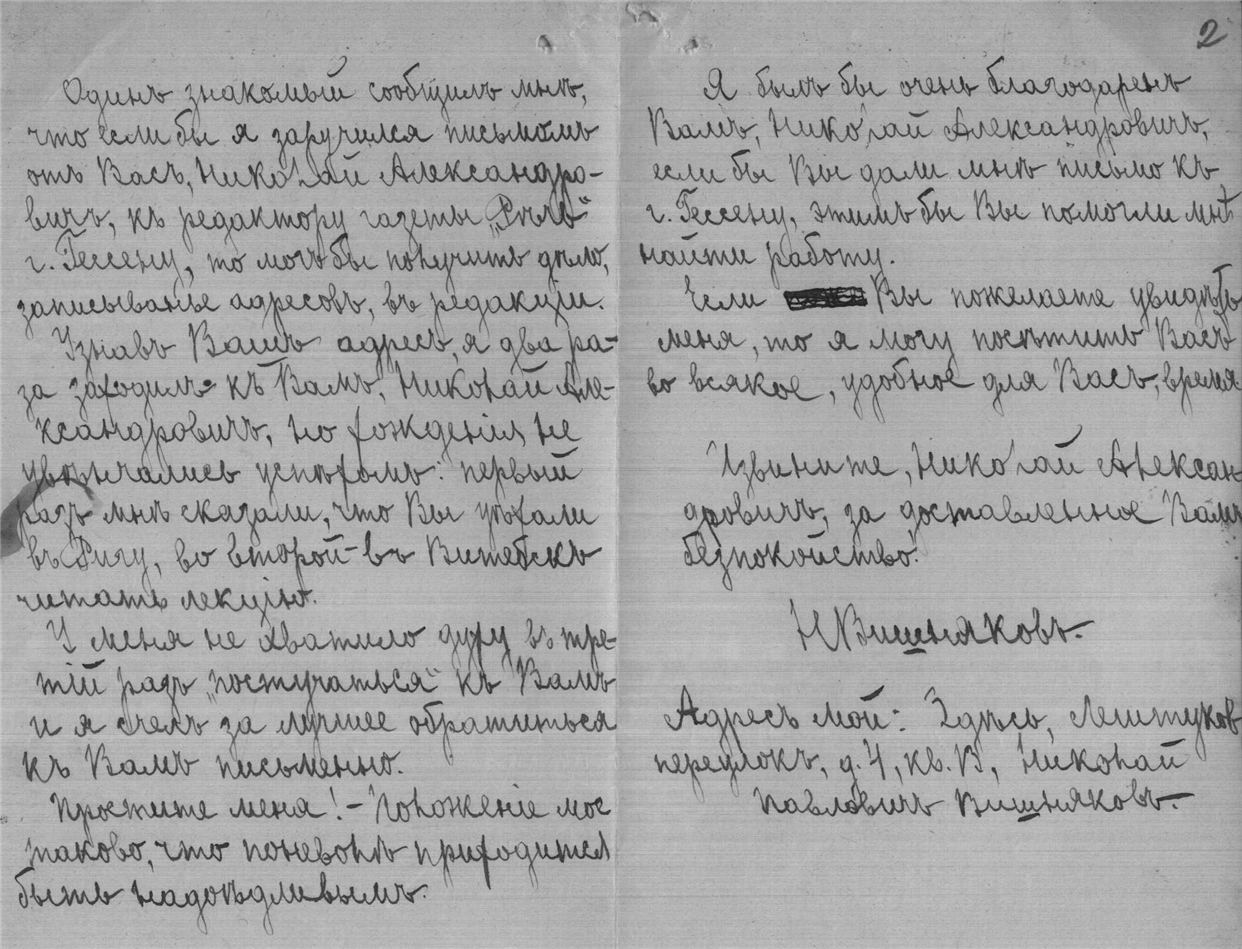 Одинъ знакомый сообщилъ мнѣ,
что если бы я заручился письмомъ
отъ Васъ, Николай Александро-
вичъ, къ редактору газеты „Рѣчь“
г. Гессену, то могъ бы получить дѣло,
записыванье адресовъ, въ редакціи.
Узнавъ Вашъ адресъ, я два ра-
за заходилъ къ Вамъ, Николай Але-
ксандровичъ, но хожденія не
увѣнчались успѣхомъ: первый
разъ мнѣ сказали, что Вы уѣхали
въ Ригу, во второй – въ Витебскъ
читать лекцію.
У меня не хватило духу въ тре-
тій разъ „постучаться“ къ Вамъ
и я счелъ за лучшее обратиться
къ Вамъ письменно.
Простите меня! – Положеніе мое
таково, что поневолѣ приходится
быть надоѣдливымъ.
2
Я былъ бы очень благодаренъ
Вамъ, Николай Александровичъ,
если бы Вы дали мнѣ письмо къ
г. Гессену, этимъ бы Вы помогли мнѣ
найти работу.
Если Вы пожелаете увидѣть
меня, то я могу посѣтить Васъ
во всякое, удобное для Васъ, время
Извините, Николай Алексан
дровичъ, за доставленное Вамъ
безпокойство!
Н Вишняковъ.
Адресъ мой: Здѣсь, Лештуков
переулокъ, д. 4, кв. В, Николай
Павловичъ Вишняковъ.